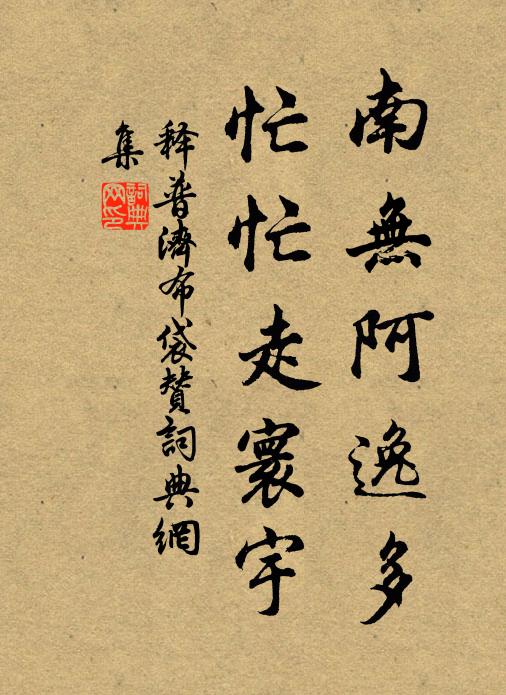 南無阿逸多
忙忙走寰宇
释普濟布袋贊詞典網
集
詞典
网印